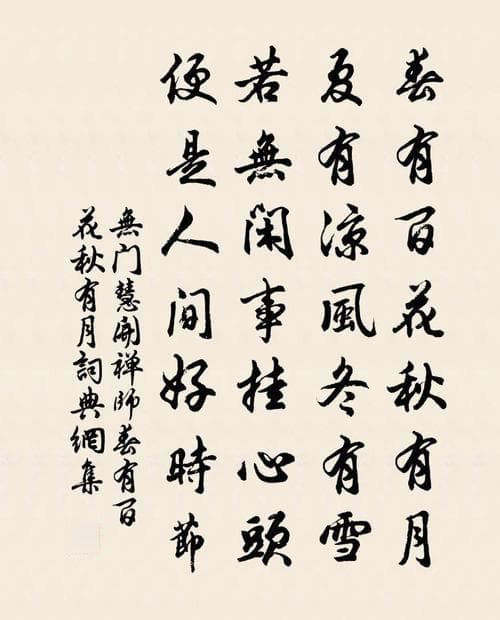 春有百花秋有月
夏有凉風冬有雪
若無閑事挂心頭
便是人间好時節
無门慧開禅师春有百
花秋有月詞典網集